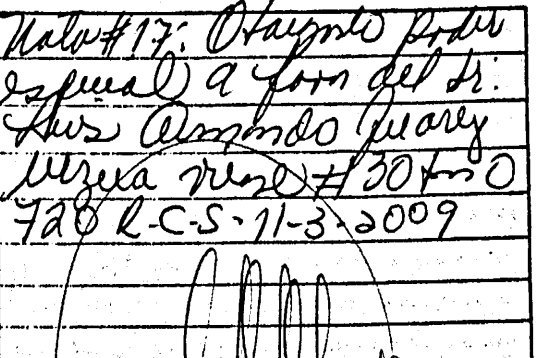 Nota #17: Otorgando poder
especial a favor del Sr.
Luis Armando Juarez
vease #30 tomo
720 R-C-S-11-3-2009